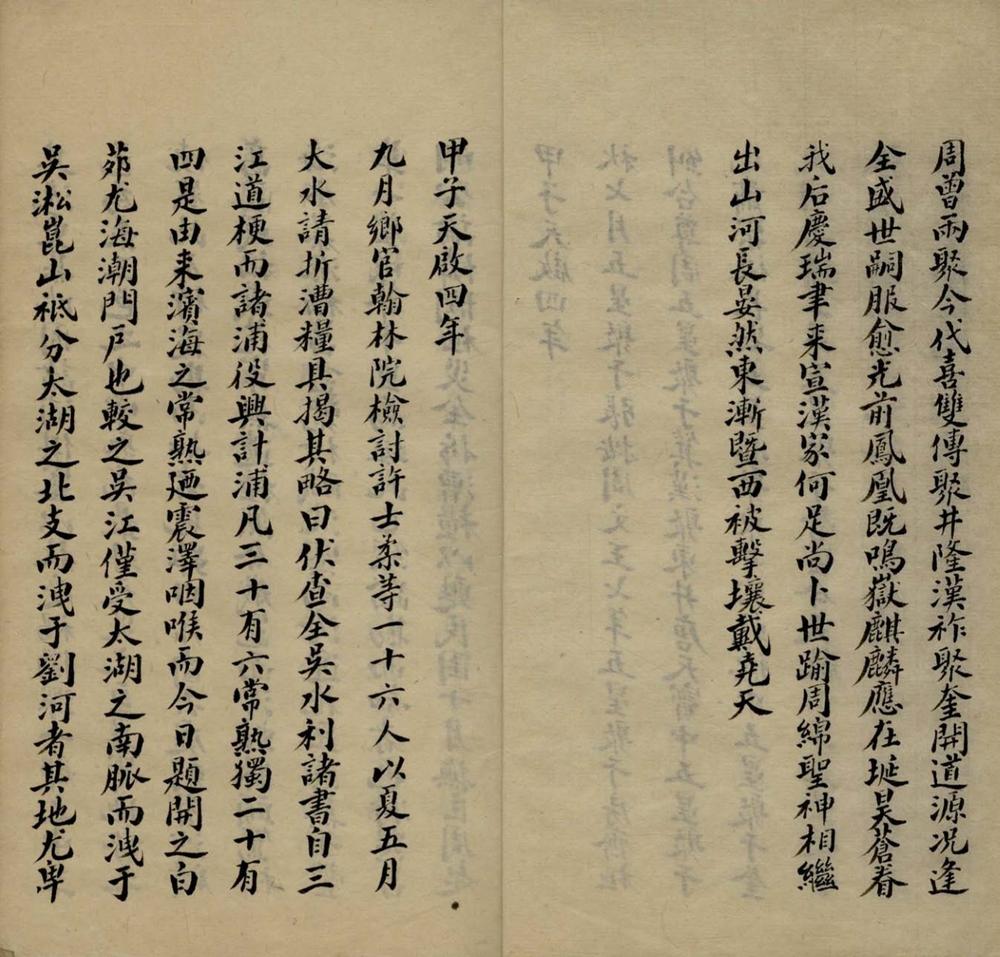 周曽兩聚今代喜雙傳聚井隆漢祚聚奎開道源况逢
全盛世嗣服愈光前鳳凰既鳴嶽麒麟應在埏昊蒼眷
我后慶瑞聿来宣漢家何足尚卜世踰周綿聖神相繼
出山河長晏然東漸暨西被擊壤戴堯天
甲子天啟四年
九月鄉官翰林院檢討許士柔等一十六人以夏五月
大水請折漕糧具揭其略曰伏查全吳水利諸書自三
江道梗而諸浦役興計浦凡三十有六常熟獨二十有
四是由来濱海之常熟廼震澤咽喉而今日題開之白
茆尤海潮門戶也較之吳江僅受太湖之南脈而洩于
吳淞崑山祗分太湖之北支而洩于劉河者其地尤卑